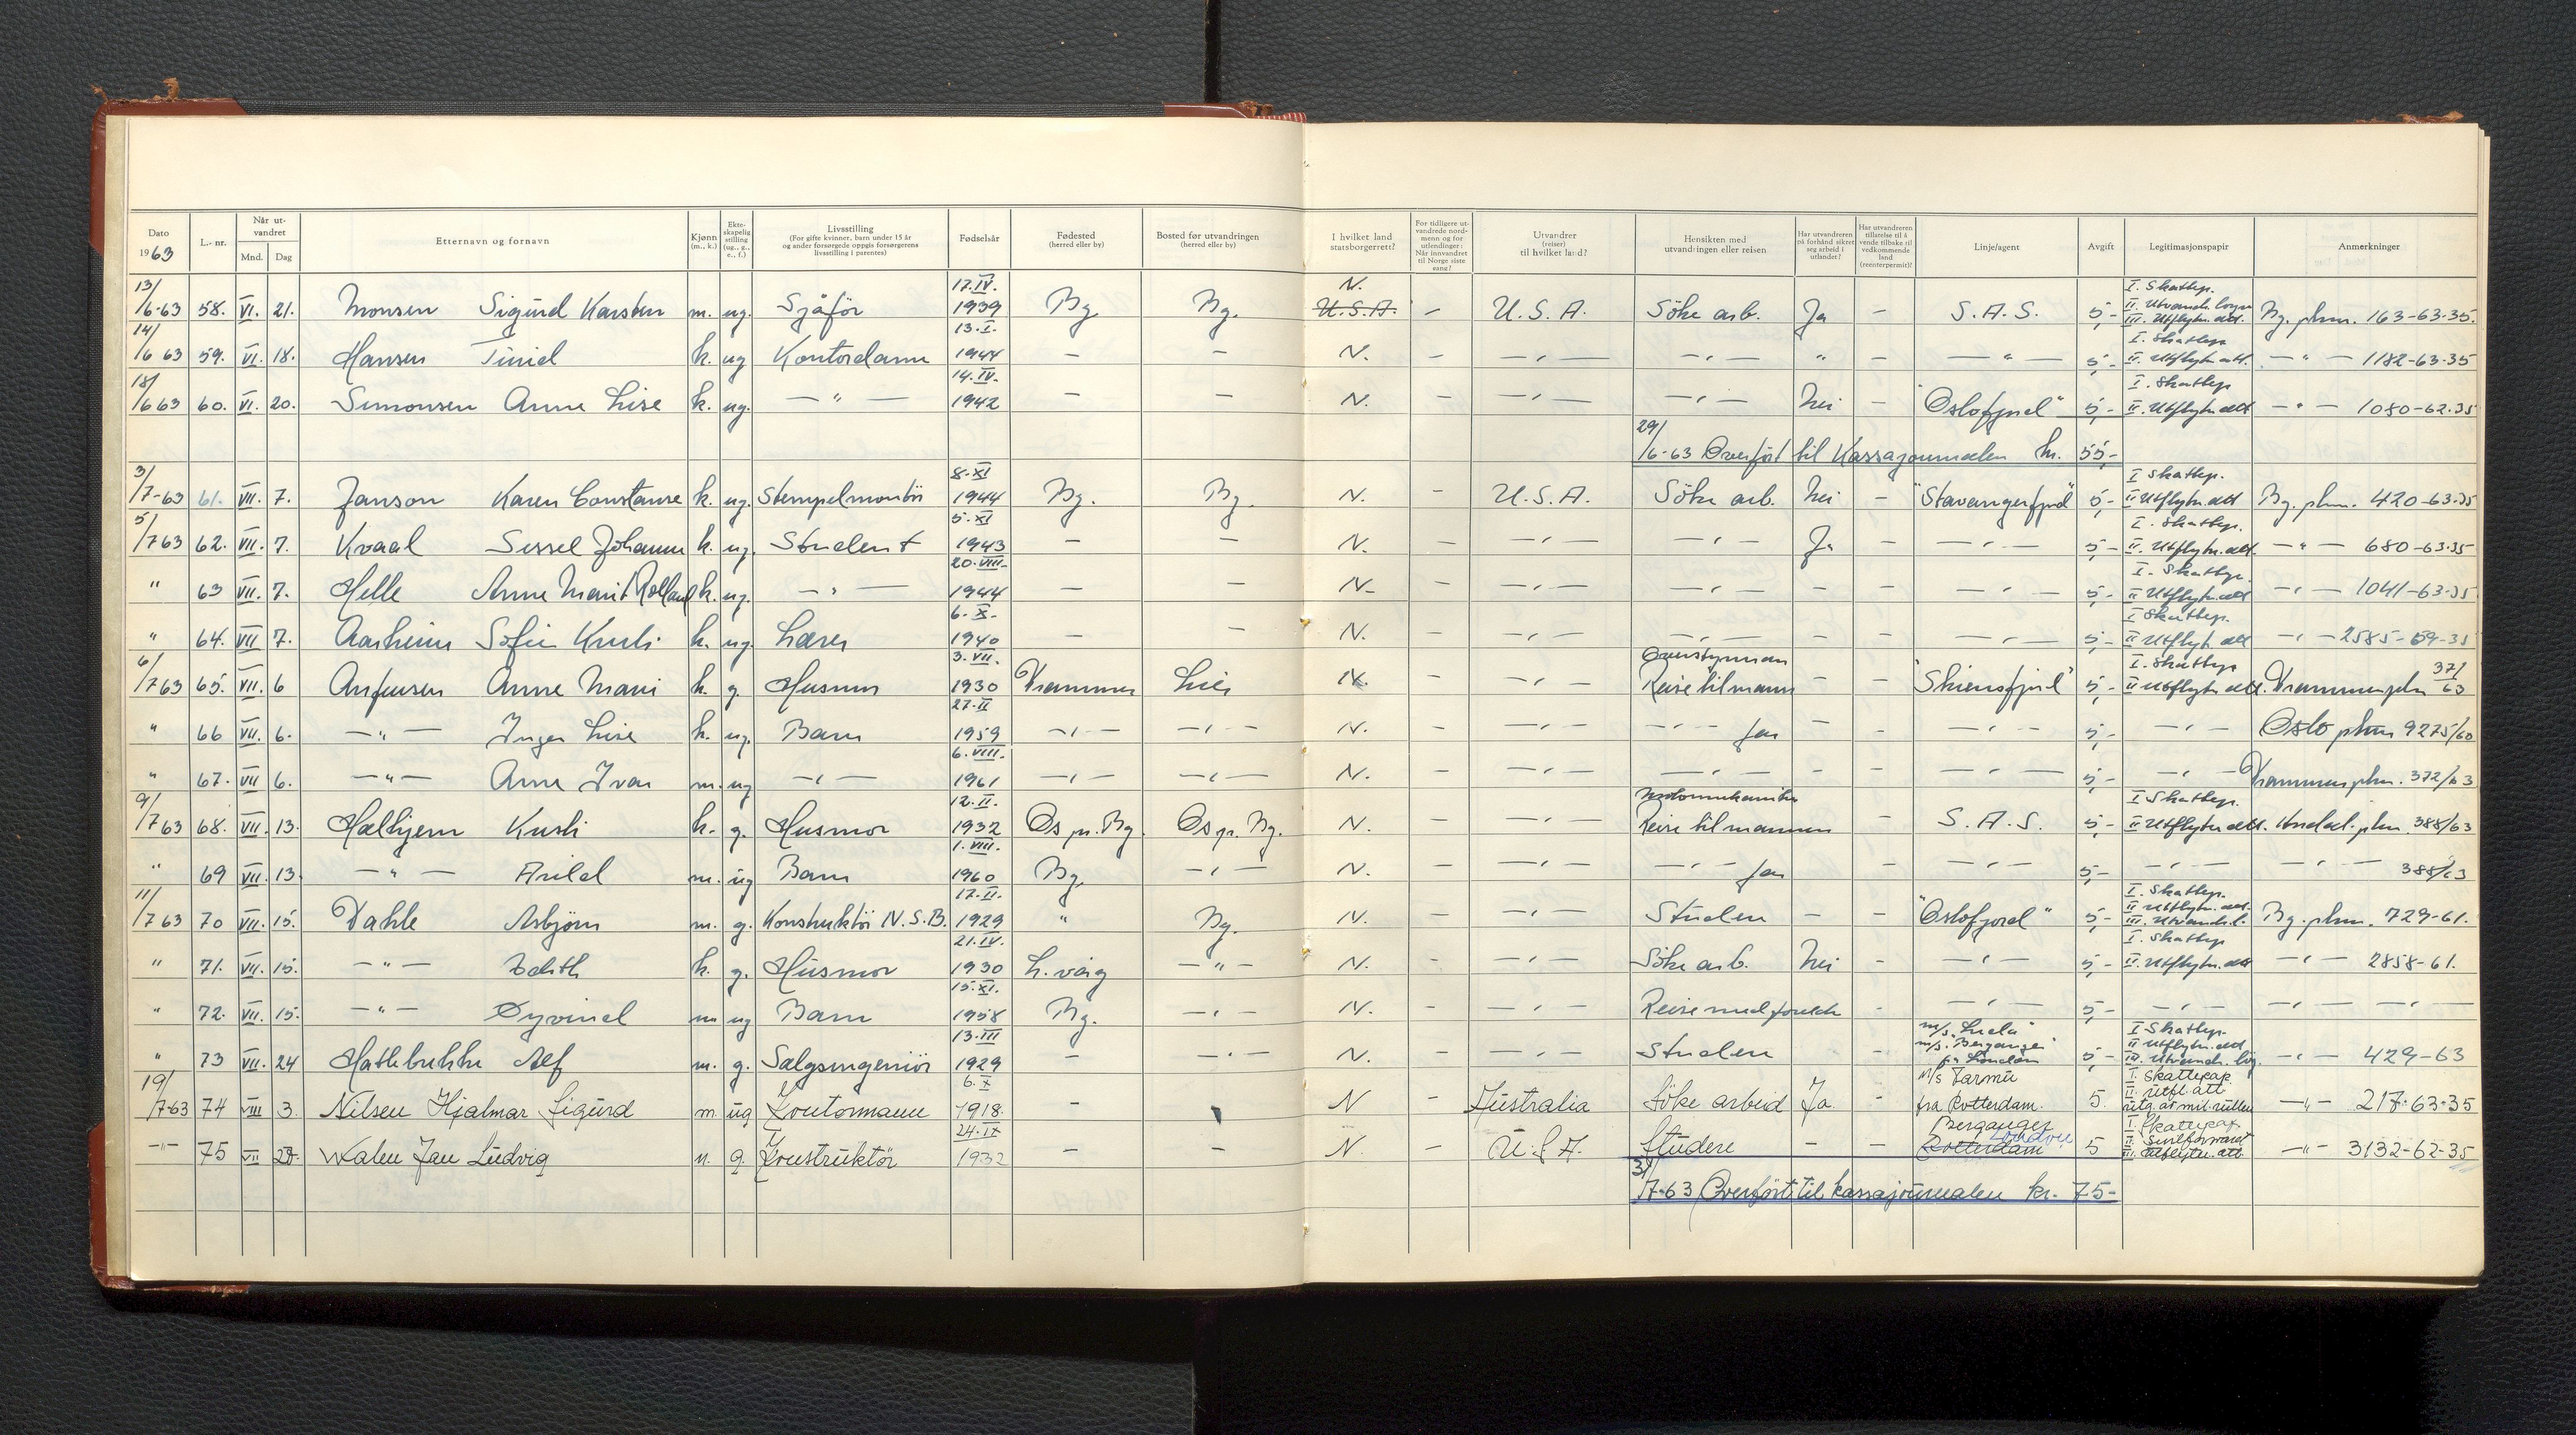 Dato 1963 L.-nr. Når utvandret Mnd. Dag Etternavn og fornavn Kjønn (m., k.) Ekteskapelig stilling (ug., g., e., f.) Livsstilling (For gifte kvinner, barn under 15 år og andre forsørgede oppgis forsørgerens livsstilling i parentes) Fødselsår Fødested (herred eller by) Bosted før utvandringen (herred eller by) I hvilket land statsborgerrett? For tidligere utvandrede nordmenn og for utlendinger: Når innvandret til Norge siste gang? Utvandrer (reiser) til hvilket land? Hensikten med utvandringen eller reisen Har utvandreren på forhånd sikret seg arbeid i utlandet? Har utvandreren tillatelse til å vende tilbake til vedkommende land (reenterpermit)? Linje/agent Avgift Legitimasjonspapir Anmerkninger
13/6-63 58. VI. 21. Monsen Sigurd Karsten m. ug. Sjåför 17.IV. 1939 Bg. Bg. N. U.S.A. – U.S.A. Söke arb. Ja – S.A.S. 5,- I. Skattep. II. Utvandr. III. Utflytn.att. Bg. pkm. 163-63-35.
14/6 63 59. VI. 18. Hansen Turid k. ug Kontordame 13.I. 1944 – – N. – –"– –"– " – –"– 5,- I. Skattep. II. Utflytn.att. –"– 1182-63-35
18/6 63 60. VI. 20. Simonsen Anne Lise k. ug. –"– 14.IV. 1942 – – N. – –"– –"– Nei – "Oslofjord" 5,- I. Skattep II. Utflytn.att –"– 1080-62-35
29/6-63 Overført til Kassajournalen kr. 55,-
3/7-63 61. VII. 7. Janson Karen Constanse k. ug. Stempelmontör 8.XI 1944 Bg. Bg. N. – U.S.A. Söke arb. Nei – "Stavangerfjord" 5,- I Skattep. II Utflytn.att Bg. pkm. 420-63-35
5/7 63 62. VII. 7. Kvaal Sissel Johanne k. ug. Student 5.XI 1943 – – N. – –"– –"– Ja – –"– 5,- I. Skattep. II. Utflytn.att. –"– 680-63-35
" 63 VII. 7. Helle Anne Marit k. ug. –"– 20.VIII. 1944 – – N. – –"– –"– – – –"– 5,- I. Skattep. II Utflytn.att –"– 1041-63-35
" 64. VII 7. Aarheim Sofie k. ug. Lærer 6.X. 1940 – – N. – –"– –"– – – –"– 5,- I Skattep. II Utflyt.att –"– 2585-59-35
6/7 63 65. VII. 6 Anfinsen Anne Mari k. g. Husmor 3.VII. 1930 Drammen Lier N. – –"– Reise til mann – – "Skiensfjord" 5,- I. Skattep II Utflytn.att. Drammen pkm 371/63
" 66 VII. 6. –"– Inger Lise k. ug. Barn 27.II 1959 –"– –"– N. – –"– –"– far – – –"– 5,- –"– Oslo pkm 9275/60
" 67. VII 6. –"– Arne Ivar m. ug –"– 6.VIII. 1961 –"– –"– N. – –"– –"– – – –"– 5,- –"– Drammen pkm. 372/63
9/7 63 68. VII. 13. Halhjem k. g. Husmor 12.II. 1932 Os pr. Bg. Os pr. Bg. N. – –"– Reise til mannen – S.A.S. 5,- I Skattep. II Utflytn.att. pkm 388/63
" 69 VII. 13. –"– Arild m. ug Barn 1.VIII. 1960 Bg. –"– N. – –"– –"– far – –"– 5,- –"– –"– 388/63
11/7 63 70 VII. 15. Dahle Asbjørn m. g. Konstruktör N.S.B. 17.II. 1929 " Bg. N. – –"– Studere – – "Oslofjord" 5,- I. Skattep. II Utflytn.att. III. Utvandr.l. Bg. pkm. 729-61.
" 71. VII. 15. –"– Edith k. g. Husmor 21.IV. 1930 L.våg –"– N. – –"– Söke arb. Nei – –"– 5,- I. Skattep II. Utflytn.att –"– 2858-61.
" 72. VII. 15. –"– Øyvind m ug Barn 15.XI. 1958 Bg. –"– N. – –"– Reise med foreldr – –"– 5,- –"– –"–
" 73 VII. 24 Alf m. g. Salgsingeniör 13.III 1929 – –"– N. – –"– Studere – m/s "Berganger" fra London 5,- I Skattep. II Utflytn.att III. Utvandr. –"– 429-63
19/7-63 74 VIII 3. Nilsen Hjalmar Sigurd m. ug Kontormann 6.X 1918. – N – Australia Söke arbeid Ja. – M/s Tarmu fra Rotterdam. 5. I. Skattepap. II. Utfl.att utg. av mil.rullen –"– 217-63-35
–"– 75 VII 28. Walen Jan Ludvig m. g. Konstruktör 24.IX 1932 – – N. – U.S.A. Studere – – Berganger Rotterdam London 5 I. Skattepap. III. Utflytn.att. –"– 3132-62-35
31/7-63 Overført til kassajournalen kr. 75-